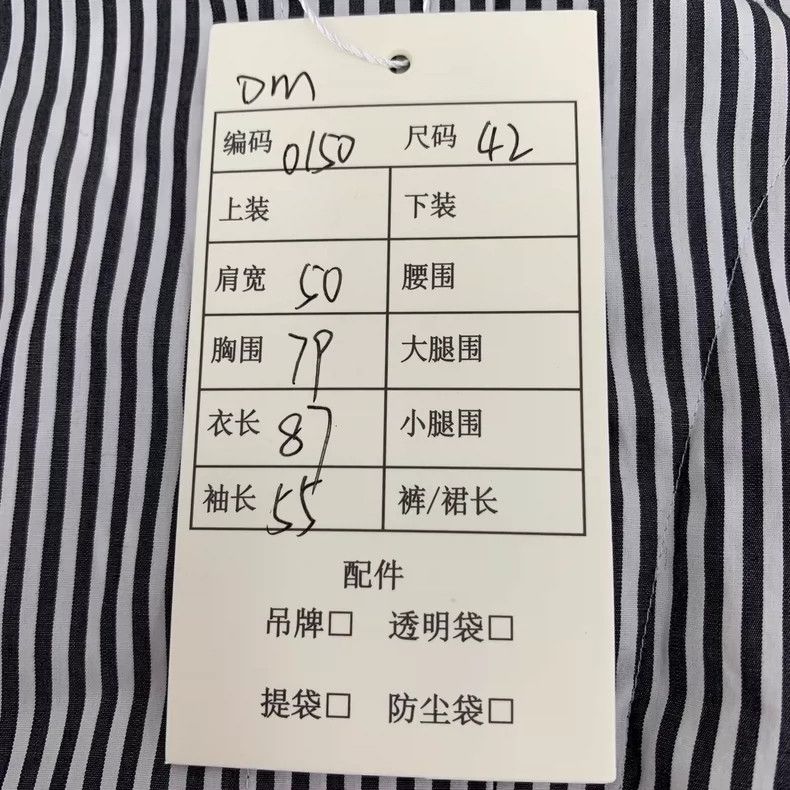 DM
编码 0150 尺码 42
上装 下装
肩宽 50 腰围
胸围 79 大腿围
衣长 87 小腿围
袖长 55 裤/裙长
配件
吊牌□ 透明袋□
提袋□ 防尘袋□